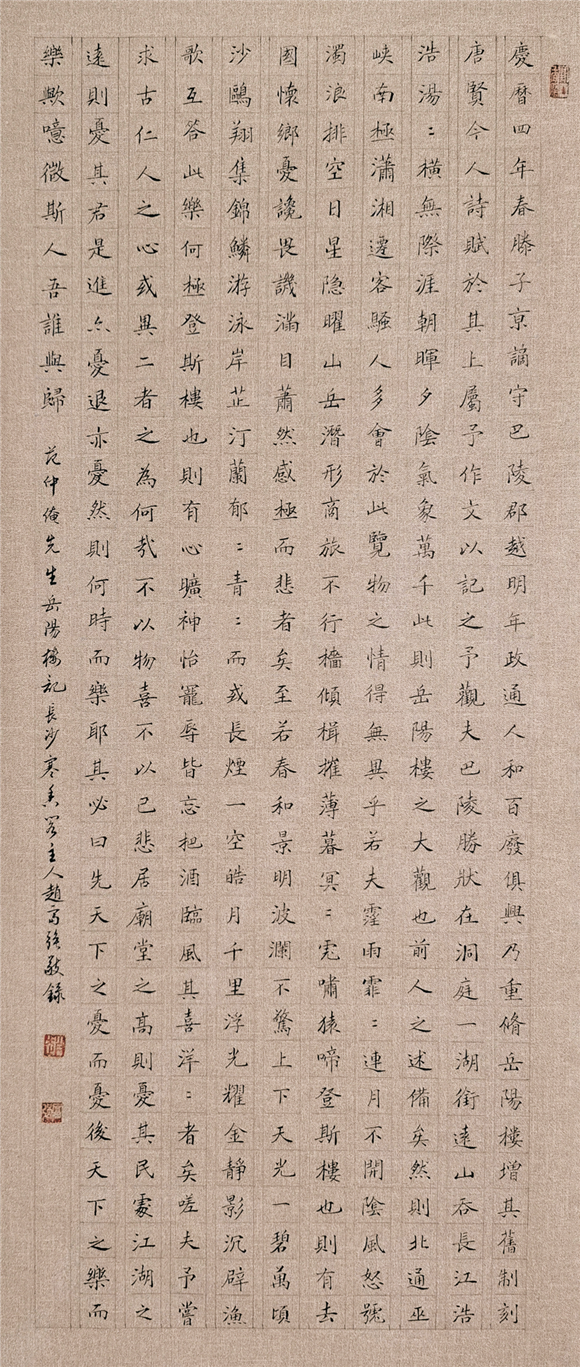 慶曆四年春滕子京謫守巴陵郡越明年政通人和百廢俱興乃重脩岳陽樓增其舊制刻
唐賢今人詩賦於其上屬予作文以記之予觀夫巴陵勝狀在洞庭一湖銜遠山吞長江浩
浩湯〻橫無際涯朝暉夕陰氣象萬千此則岳陽樓之大觀也前人之述備矣然則北通巫
峽南極瀟湘遷客騷人多會於此覽物之情得無異乎若夫霪雨霏〻連月不開陰風怒號
濁浪排空日星隱曜山岳潛形商旅不行檣傾楫摧薄暮冥〻虎嘯猿啼登斯樓也則有去
國懷鄉憂讒畏譏滿目蕭然感極而悲者矣至若春和景明波瀾不驚上下天光一碧萬頃
沙鷗翔集錦鱗游泳岸芷汀蘭郁〻青〻而或長煙一空皓月千里浮光耀金靜影沉璧漁
歌互答此樂何極登斯樓也則有心曠神怡寵辱皆忘把酒臨風其喜洋〻者矣嗟夫予嘗
求古仁人之心或異二者之為何哉不以物喜不以己悲居廟堂之高則憂其民處江湖之
遠則憂其君是進亦憂退亦憂然則何時而樂耶其必曰先天下之憂而憂後天下之樂而
樂歟噫微斯人吾誰與歸 范仲淹先生岳陽樓記長沙寒香閣主人趙高強敬錄